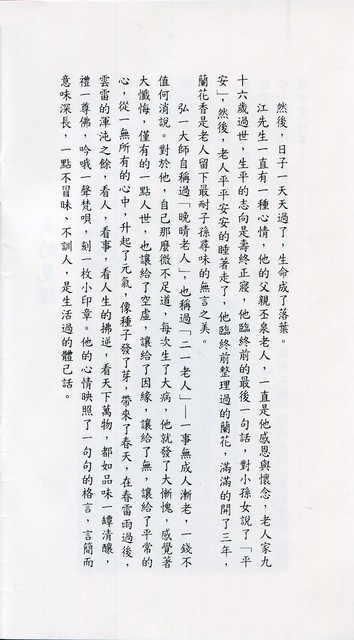 然後，日子一天天過了，生命成了落葉。
江先生一直有一種心情，他的父親丕泉老人，一直是他感恩與懷念，老人家九
十六歲過世，生平的志向是壽終正寢，他臨終前的最後一句話，對小孫女說了「平
安」，然後，老人平平安安的睡著走了，他臨終前整理過的蘭花，滿滿的開了三年，
蘭花香是老人留下最耐子孫尋味的無言之美。
弘一大師自稱過「晚晴老人」，也稱過「二一老人」——一事無成人漸老，一錢不
值何消說。對於他，自己那麼微不足道，每次生了大病，他就發了大慚愧，感覺著
大懺悔，僅有的一點人世，也讓給了空虛，讓給了因緣，讓給了無，讓給了平常的
心，從一無所有的心中，升起了元氣，像種子發了芽，帶來了春天，在春雷雨過後，
雲雷的渾沌之餘，看人，看事，看人生的拂逆，看天下萬物，都如品味一罈清釀，
禮一尊佛，吟哦一聲梵唄，刻一枚小印章。他的心情映照了一句句的格言，言簡而
意味深長，一點不冒昧、不訓人，是生活過的體己話。